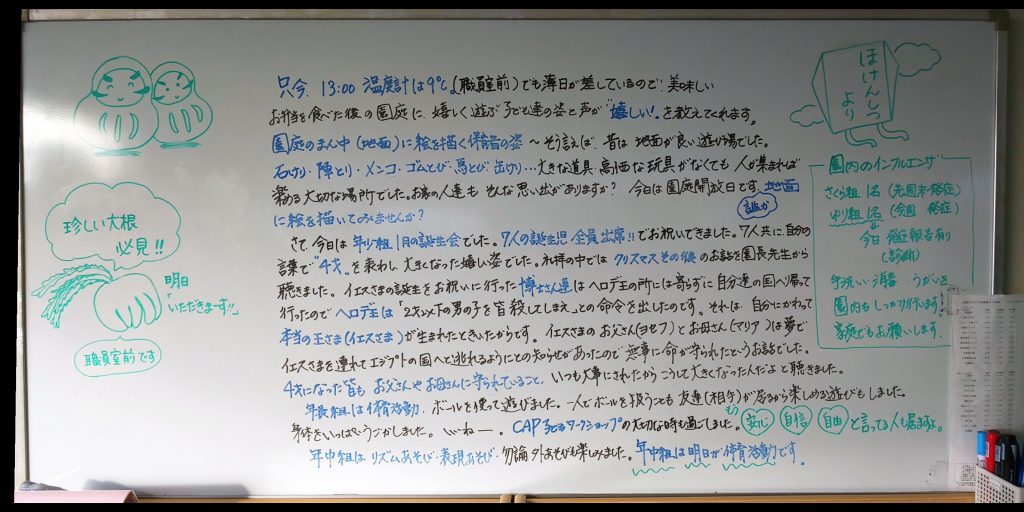 只今、13:00 温度計は9℃。(職員室前)でも薄日が差しているので 美味しい
お弁当を食べた後の園庭に、嬉しく遊ぶ子ども達の姿と声が"嬉しい!"を教えてくれます。
園庭のまん中(地面)に絵を描く保育者の姿 〜 そう言えば、昔は 地面が良い遊び場でした。
石けり・陣とり・メンコ・ゴムとび・馬とび・缶けり…大きな道具・高価な玩具がなくても 人が集まれば
楽める大切な場所でした。お家の人達も そんな思い出がありますか? 今日は園庭開放日です。地面
に絵を描いてみませんか?
誰か
さて、今日は 年少組 1月の誕生会でした。7人の誕生児 全員出席!!でお祝いできました。7人共に、自分の
言葉で"4才"を表わし 大きくなった嬉しい姿でした。礼拝の中では クリスマスその後のお話を園長先生から
聴きました。イエスさまの誕生をお祝いに行った 博士さん達は ヘロデ王の所には寄らずに 自分達の国へ帰って
行ったので ヘロデ王は「2才以下の男の子を皆殺してしまえ」との命令を出したのです。それは、自分にかわって
本当の王さま(イエスさま)が生まれたときいたからです。イエスさまのお父さん(ヨセフ)とお母さん(マリア)は夢で
イエスさまを連れてエジプトの国へと逃れるようにとの知らせがあったので 無事に命が守られたというお話でした。
4才になった皆も お父さんやお母さんに守られていること。いつも大事にされたから こうして大きくなった人だよ と聴きました。
年長組は体育活動。ボールを使って遊びました。一人でボールを扱うことも 友達(相手)が居るから楽しめる遊びもしました。
身体をいっぱいうごかしました。いいねー。CAP子どもワークショップの大切な時も過ごしました。もう 安心 自信 自由 と言ってる人も居ますよ。
年中組は リズムあそび・表現あそび・勿論 外あそびも楽しみました。年中組は明日が体育活動です。
珍しい大根
必見!!
明日
「いただきまーす!!」
職員室前です
ほけんしつ
より
園内のインフルエンザ
さくら組 1名 (先週末・発症)
ゆり組 1名 (今週 発症)
今日 発症報告有り
(診断)
手洗い・消毒・うがいを
園内もしっかり行います。
家庭でもお願いします。